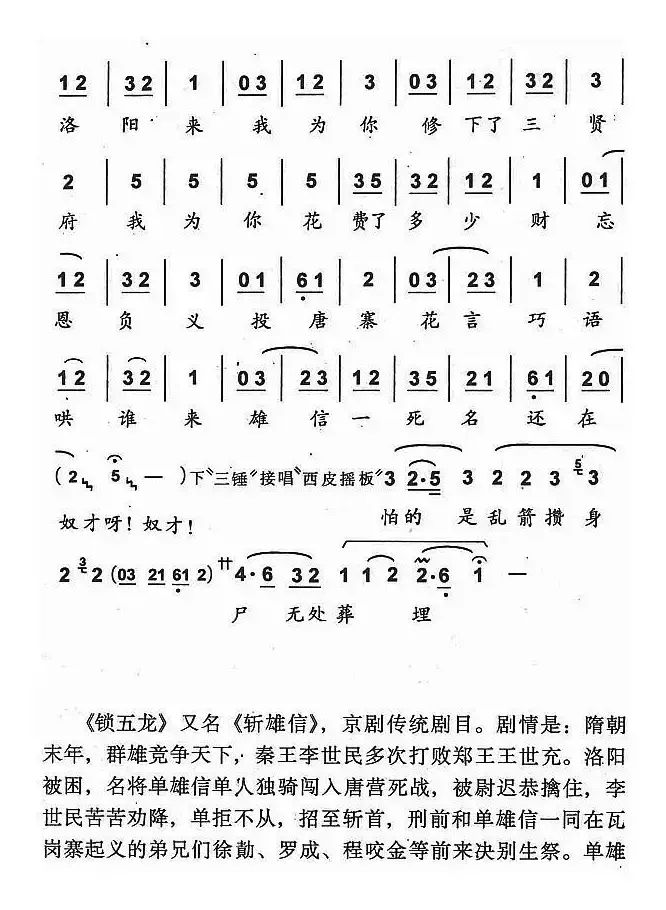 12 | 32 | 1 | 03 | 12 | 3 | 03 | 12 | 32 | 3
洛 阳 来 我 为 你 修 下了 三 贤
2 | 5 | 5 | 5 | 5 | 35 | 32 | 12 | 1 | 01
府 我 为 你 花 费了 多 少 财 忘
12 | 32 | 3 | 01 | 61 | 2 | 03 | 23 | 1 | 2
恩 负 义 投 唐 寨 花 言 巧 语
12 | 32 | 1 | 03 | 23 | 12 | 35 | 21 | 61 | 20
哄 谁 来 雄 信 一 死 名 还 在
(2 5 — )下“三锤”接唱“西皮摇板”3 2·5 3 2 2 3 5 3
奴才呀！奴才！ 怕的 是乱箭攒身
2 3 2 (03 21 61 2) 艹 4·6 32 1 1 2 2·6 1 —
尸 无处葬 埋
《锁五龙》又名《斩雄信》，京剧传统剧目。剧情是：隋朝
末年，群雄竞争天下，秦王李世民多次打败郑王王世充。洛阳
被困，名将单雄信单人独骑闯入唐营死战，被尉迟恭擒住，李
世民苦苦劝降，单拒不从，招至斩首，刑前和单雄信一同在瓦
岗寨起义的弟兄们徐勣、罗成、程咬金等前来决别生祭。单雄